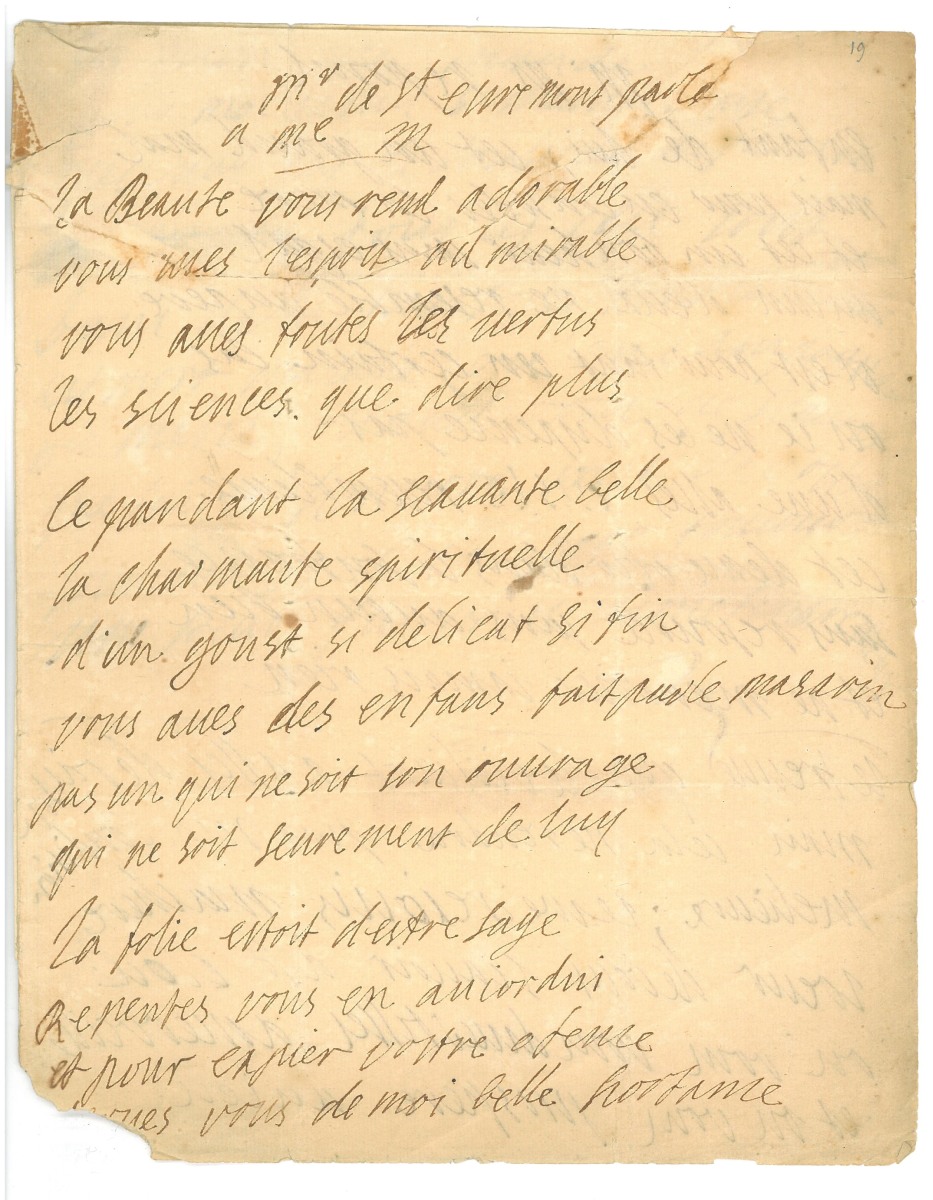 19
mr de st euremont parle
a me m
la Beaute vous rend adorable
vous aues l'esprit admirable
vous aues toutes les uertus
les sciences. que dire plus
ce pandant la scauante belle
la charmante spirituelle
d'un goust si delicat si fin
vous aues des enfans fait par le masarin
pas un qui ne soit son ouurage
qui ne soit seurement de luy
la folie estoit destre sage
Repentes vous en auiordui
et pour expier vostre ofence
vous de moi belle hortance